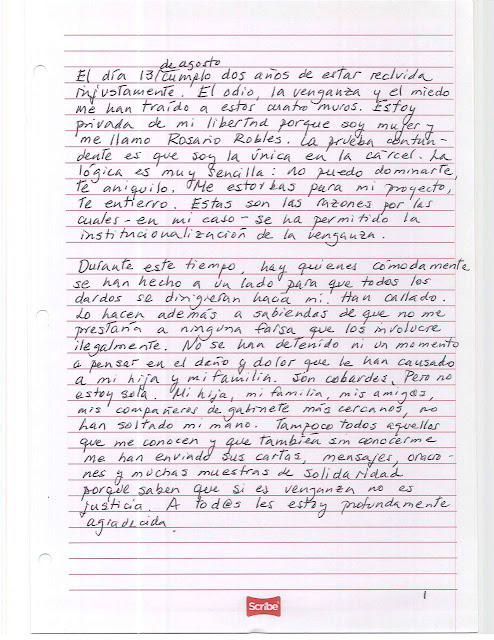 de agosto
El día 13 cumplo dos años de estar recluida
injustamente. El odio, la venganza y el miedo
me han traído a estos cuatro muros. Estoy
privada de mi libertad porque soy mujer y
me llamo Rosario Robles. La prueba contun-
dente es que soy la única en la cárcel. La
lógica es muy sencilla: no puedo dominarte,
te aniquilo. Me estorbas para mi proyecto,
te entierro. Estas son las razones por las
cuales - en mi caso - se ha permitido la
institucionalización de la venganza.

Durante este tiempo, hay quienes cómodamente
se han hecho a un lado para que todos los
dardos se dirigieran hacia mí. Han callado.
Lo hacen además a sabiendas de que no me
prestaría a ninguna farsa que los involucre
ilegalmente. No se han detenido ni un momento
a pensar en el daño y dolor que le han causado
a mi hija y mi familia. Son cobardes. Pero no
estoy sola. Mi hija, mi familia, mis amig@s,
mis compañeros de gabinete más cercanos, no
han soltado mi mano. Tampoco todos aquellos
que me conocen y que también sin conocerme
me han enviado sus cartas, mensajes, oracio-
nes y muchas muestras de solidaridad
porque saben que si es venganza no es
justicia. A tod@s les estoy profundamente
agradecida.
1
Scribe